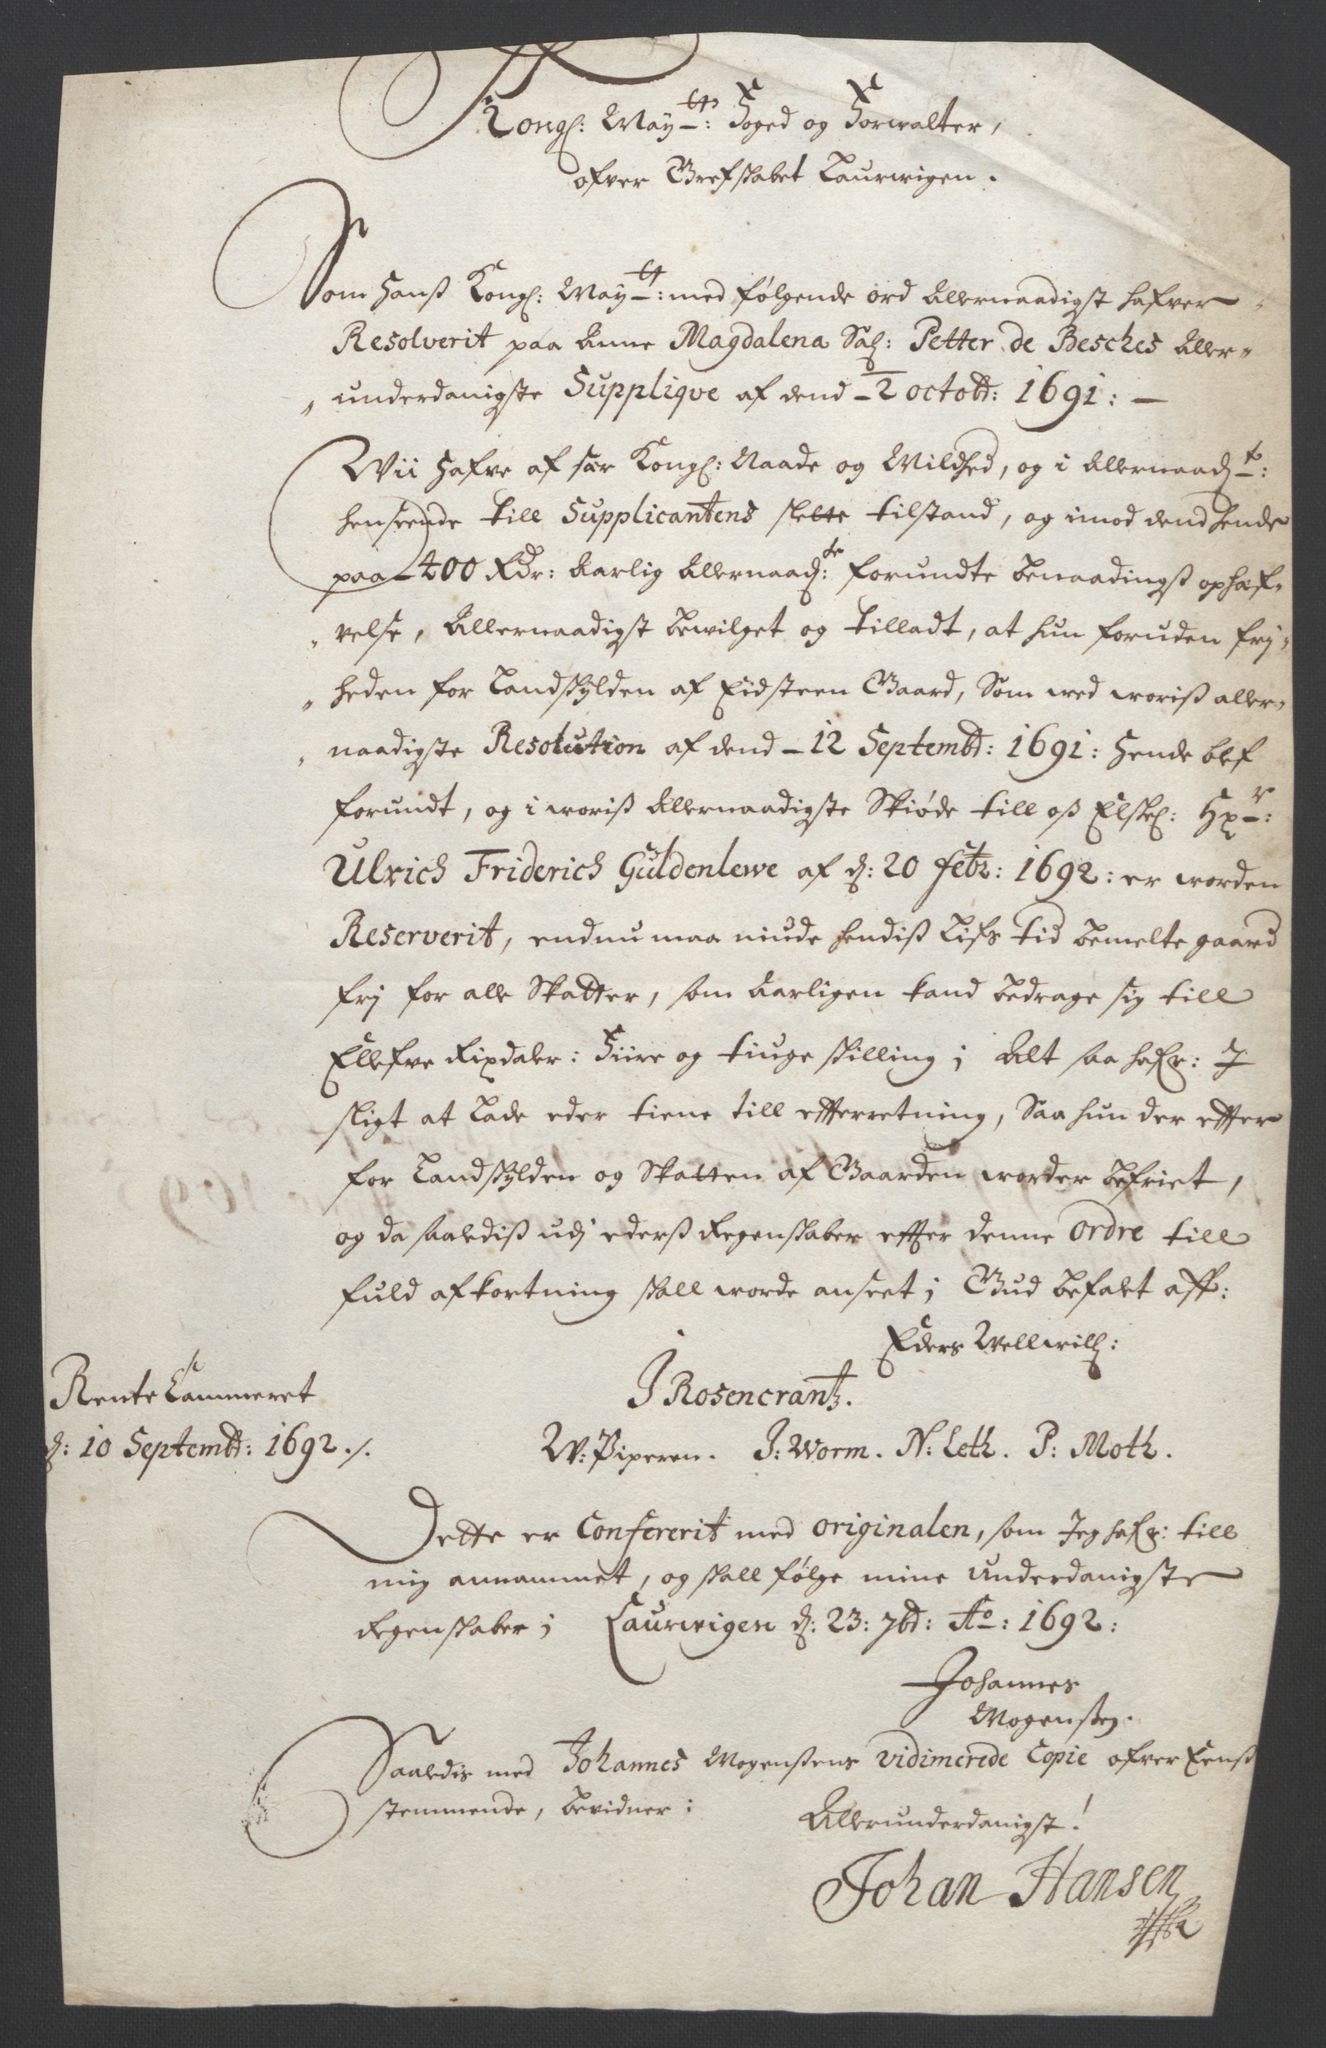 Kongl: May_ts: Foged og Forwalter,
ofver Grefskabet Laurwigen.
Som Hanß Kongl: May_tt: med følgende ord Allernaadigst hafver
Resolverit paa Anne Magdalena Sal: Petter de Besches Aller=
underdanigste Supplique af dend 2 octobr: 1691: —
Wii Hafve af sær Kongl: Naade og Mildhed, og i Allernaadigste:
henseende till Supplicantens slette tilstand, og imod dend hende
paa 400 Rdr: Aarlig Allernaad:te forundte benaadingß ophæf=
velse, Allernaadigst bewilget og tilladt, at hun foruden frj=
heden for Landskylden af Eidsteen Gaard, Som wed woriß aller=
naadigste Resolution af dend 12 Septembr: 1691: Hende blef
forundt, og i woriß Allernaadigste Skiøde till oß Elskel: Hr:
Ulrich Friderich Güldenlewe af d: 20 febr: 1692: er worden
Reserverit, endnu maa niude hendiß Lifs tid bemelte gaard
frj for alle Skatter, som Aarligen kand bedrage sig till
Ellefve Rixdaler: Fiire og tiuge skilling; Alt saa hafr: I
sligt at Lade eder tiene till efterretning, Saa hun der efter
for Landskylden og Skatten af Gaarden worder befriet,
og da saaledis udj ederß Regenskaber efter denne ordre till
fuld afkortning skall worde anseet; Gud befalt aff:
Eders Wellwill:
Rente Cammeret
J Rosencrantz.
d: 10 Septembr: 1692./.
W: Piperen. J: Worm. N: Leth. P: Moth.
Dette er Confererit med originalen, som Jeg hafr: till
mig annammet, og skall følge mine underdanigste
Regenskaber; Laurwigen d: 23: 7br: Ao: 1692:
Johannes
Mogenßen.
Saaledis med Johannes Mogenßens vidimerede Copie ofver Eenß
stemmende, bevidner:
Allerunderdanigst!
Johan Hansen